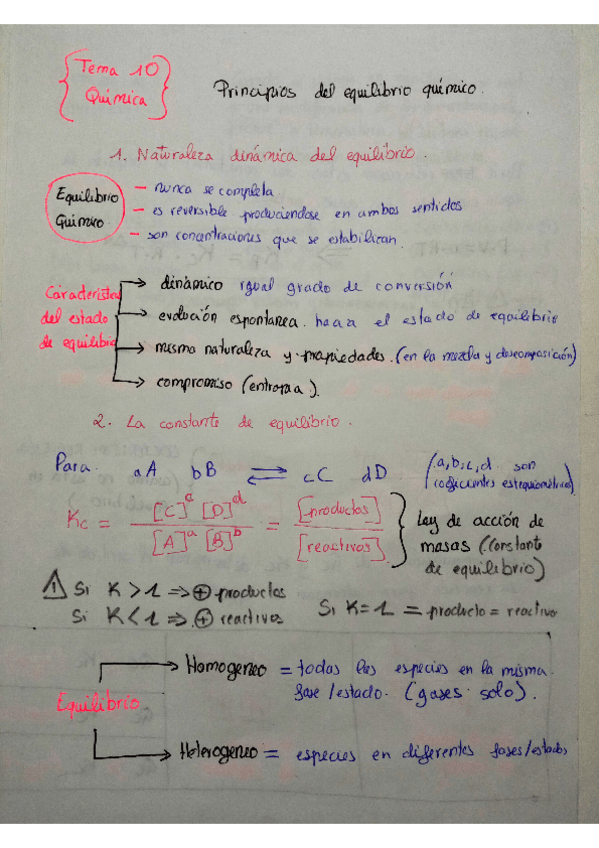 Tema 10
Química
Principios del equilibrio químico.
1. Naturaleza dinámica del equilibrio.
Equilibrio
Químico.
- nunca se completa
- es reversible produciendose en ambos sentidos
- son concentraciones que se estabilizan.
Caracteristicas
del estado
de equilibrio
→ dinámico igual grado de conversión
→ evolución espontanea hacia el estado de equilibrio
→ misma naturaleza y propiedades. (en la mezcla y descomposición)
→ compromiso (entropia).
2. La constante de equilibrio.
Para. aA bB ⇌ cC dD (a,b,c,d son
coeficientes estequiométricos).
Kc = [C]^c [D]^d / [A]^a [B]^b = [productos] / [reactivos]
Ley de acción de
masas (constante
de equilibrio)
⚠ Si K > 1 ⇒ ⊕ productos
Si K < 1 ⇒ ⊕ reactivos
Si K = 1 = producto = reactivo
Equilibrio
→ Homogeneo = todas las especies en la misma
fase/estado. (gases solo).
→ Heterogeneo = especies en diferentes fases/estados